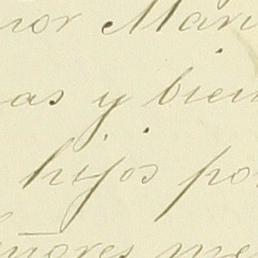 nor Mari
as y bien
hijos po
ñores me